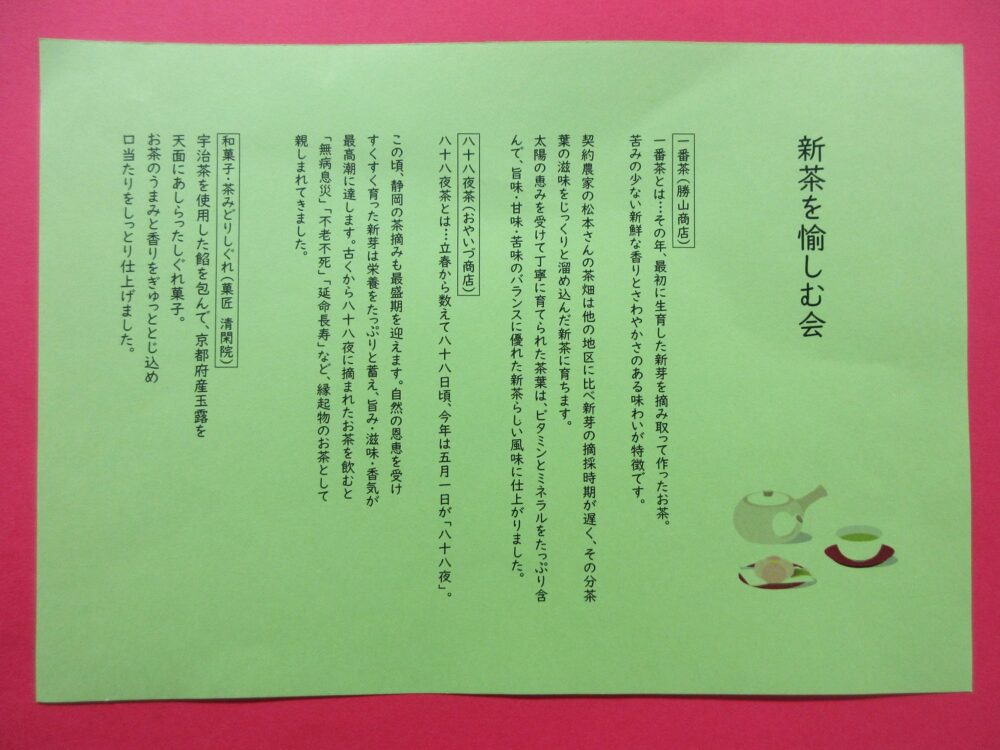 新茶を愉しむ会
一番茶（勝山商店）
一番茶とは…その年、最初に生育した新芽を摘み取って作ったお茶。
苦みの少ない新鮮な香りとさわやかさのある味わいが特徴です。
契約農家の松本さんの茶畑は他の地区に比べ新芽の摘採時期が遅く、その分茶
葉の滋味をじっくりと溜め込んだ新茶に育ちます。
太陽の恵みを受けて丁寧に育てられた茶葉は、ビタミンとミネラルをたっぷり含
んで、旨味・甘味・苦味のバランスに優れた新茶らしい風味に仕上がりました。
八十八夜茶（おやいづ商店）
八十八夜茶とは…立春から数えて八十八日頃、今年は五月一日が「八十八夜」。
この頃、静岡の茶摘みも最盛期を迎えます。自然の恩恵を受け
すくすく育った新芽は栄養をたっぷりと蓄え、旨み・滋味・香気が
最高潮に達します。古くから八十八夜に摘まれたお茶を飲むと
「無病息災」「不老不死」「延命長寿」など、縁起物のお茶として
親しまれてきました。
和菓子・茶みどりしぐれ（菓匠 清閑院）
宇治茶を使用した餡を包んで、京都府産玉露を
天面にあしらったしぐれ菓子。
お茶のうまみと香りをぎゅっととじ込め
口当たりをしっとり仕上げました。